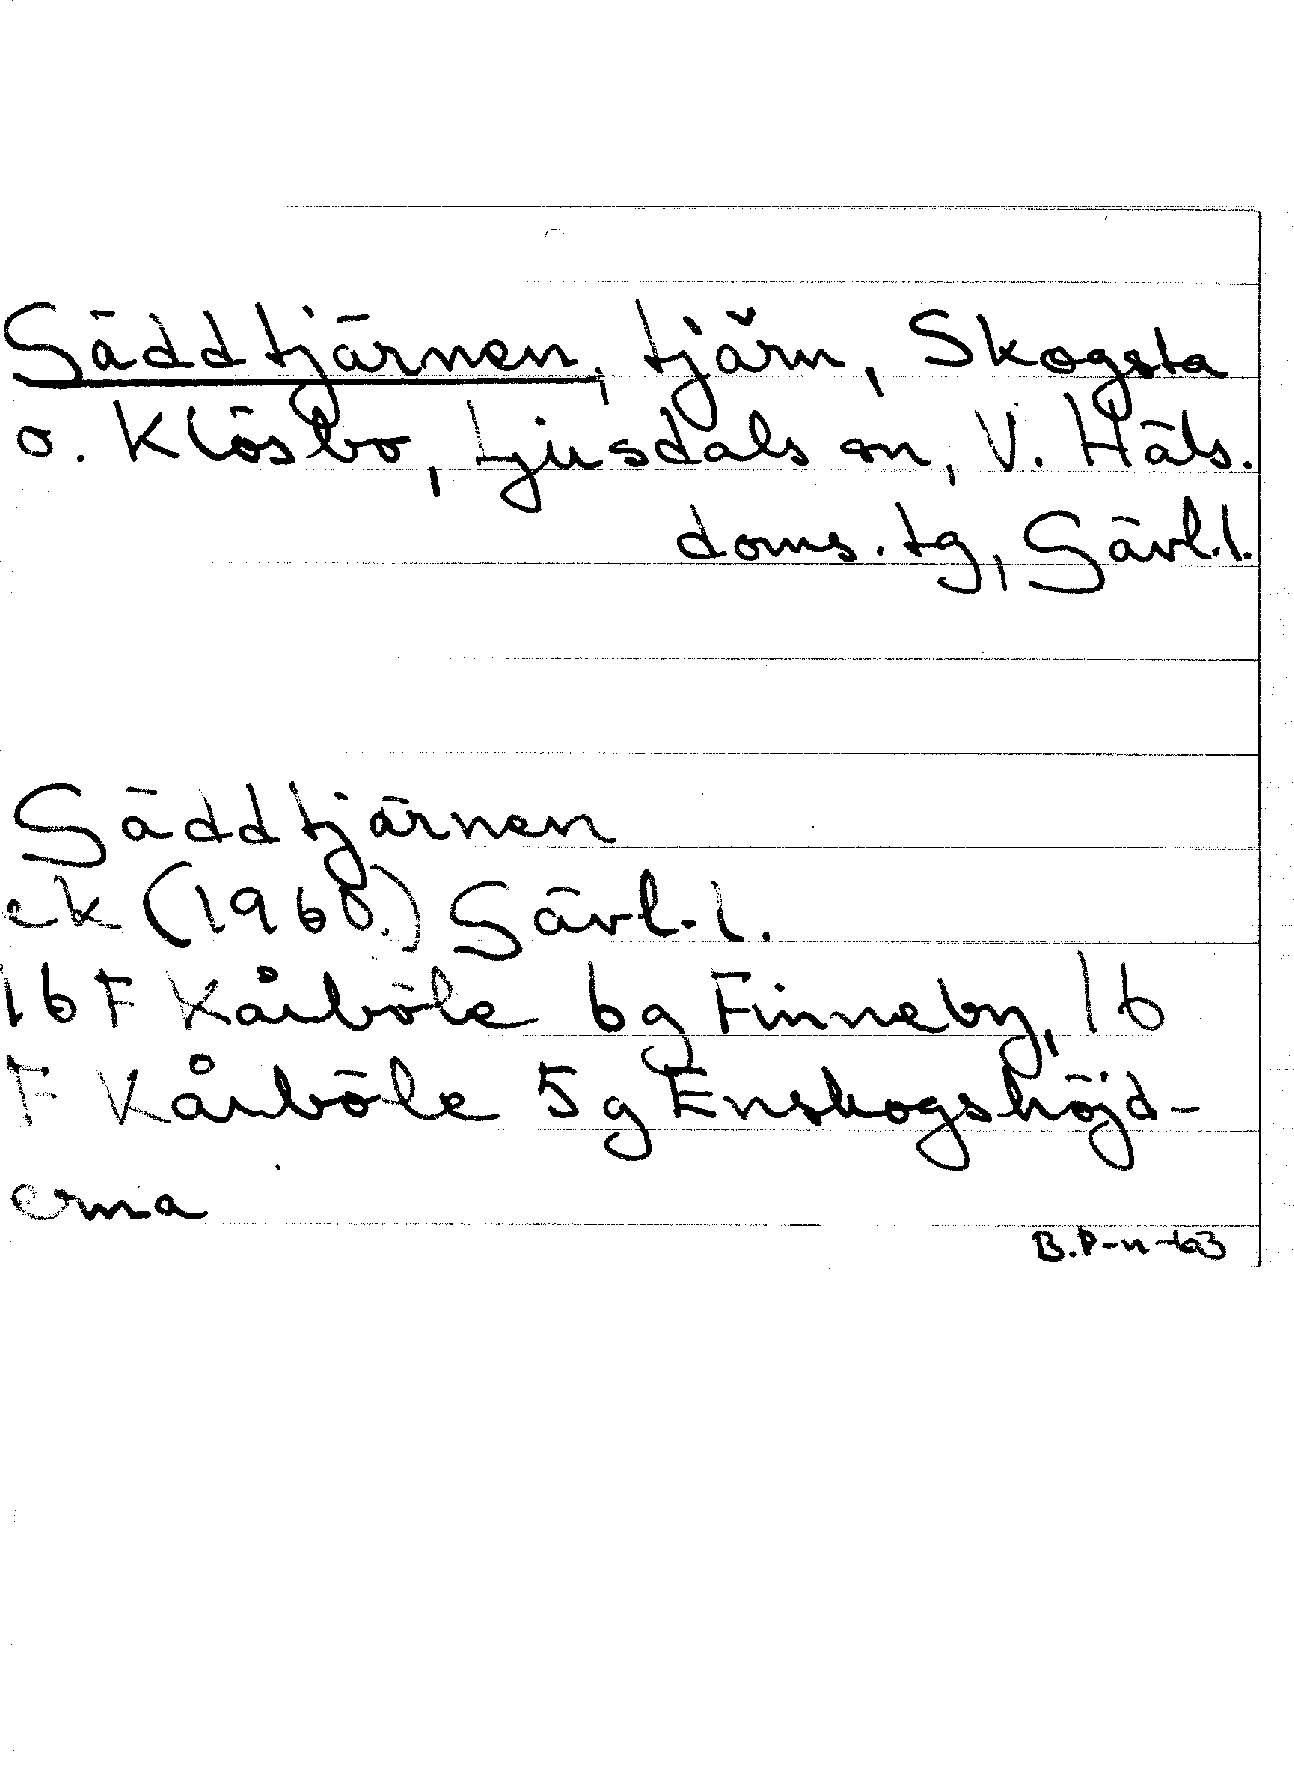 Gäddtjärnen, tjärn, Skogsta
o. Klösbo, Ljusdals sn, V. Häls.
doms.tg, Gävl.l.
Gäddtjärnen
ek (1960.) Gävl.l.
16 F Kårböle 6g Finneby, 16
F Kårböle 5g Enskogshöjd-
erna
B.P-n -63